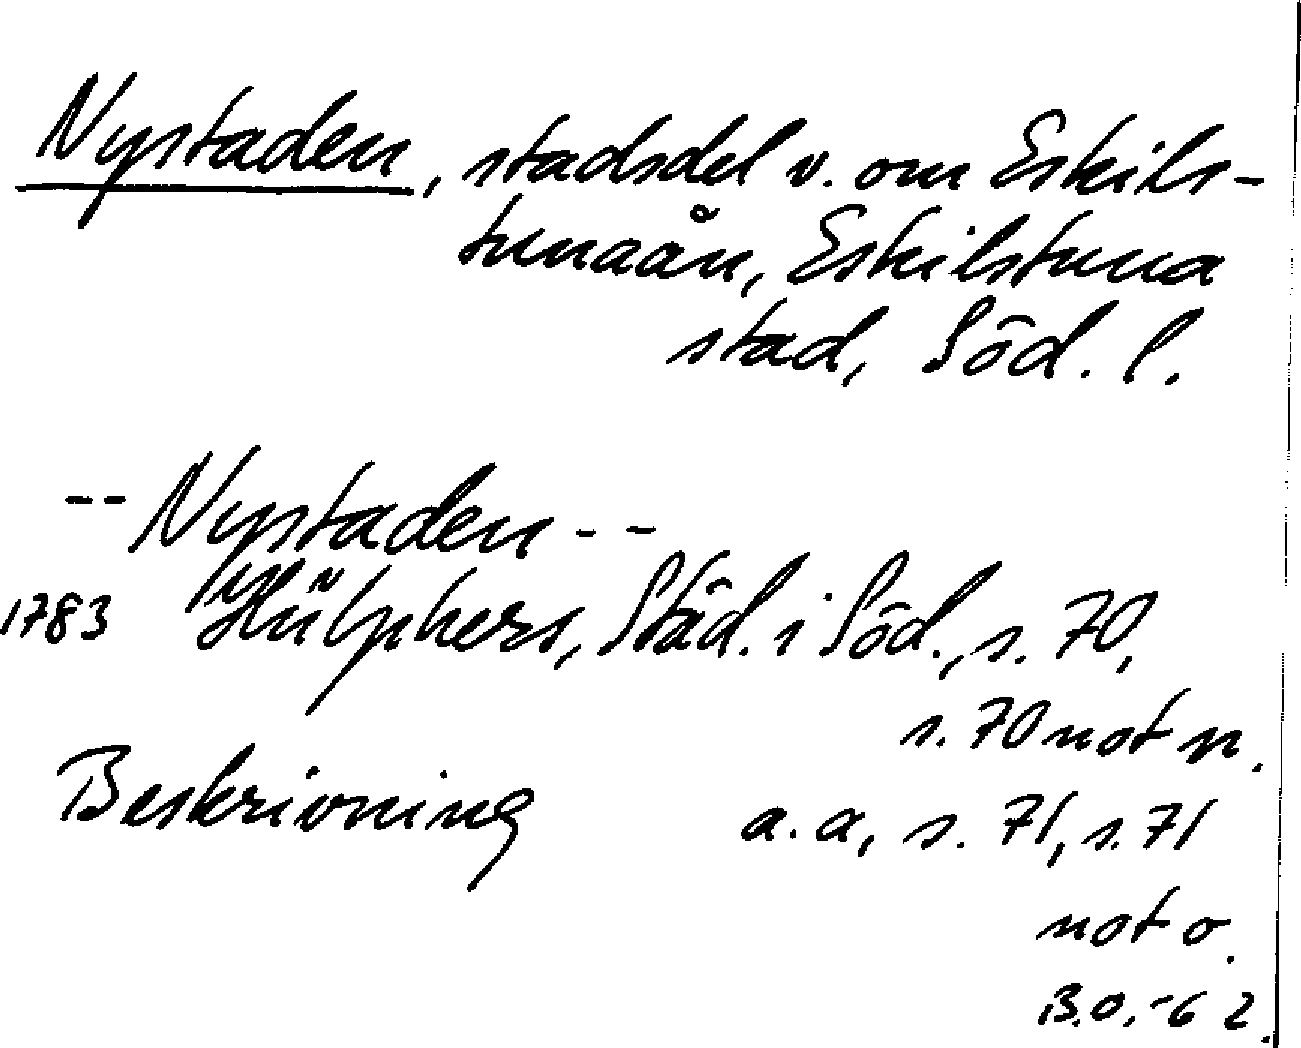 Nystaden, stadsdel v. om Eskils-
tunaån, Eskilstuna
stad, Söd. l.
-- Nystaden --
1783 Hülphers, Städ. i Söd., s. 70,
s. 70 not n.
Beskrivning a. a, s. 71, s. 71
not o.
B.O.-62.